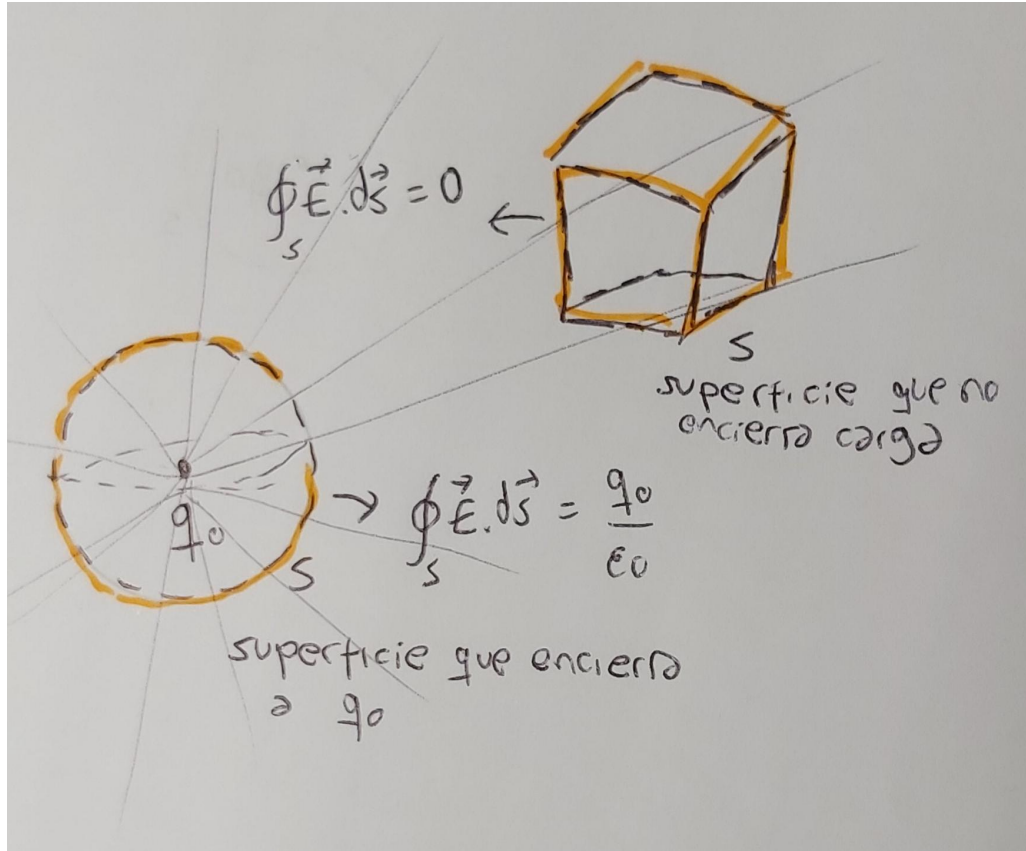 ∮ₛ E⃗.ds⃗ = 0
S
superficie que no
encierra carga
q₀
S
∮ₛ E⃗.ds⃗ = q₀/ε₀
superficie que encierra
a q₀